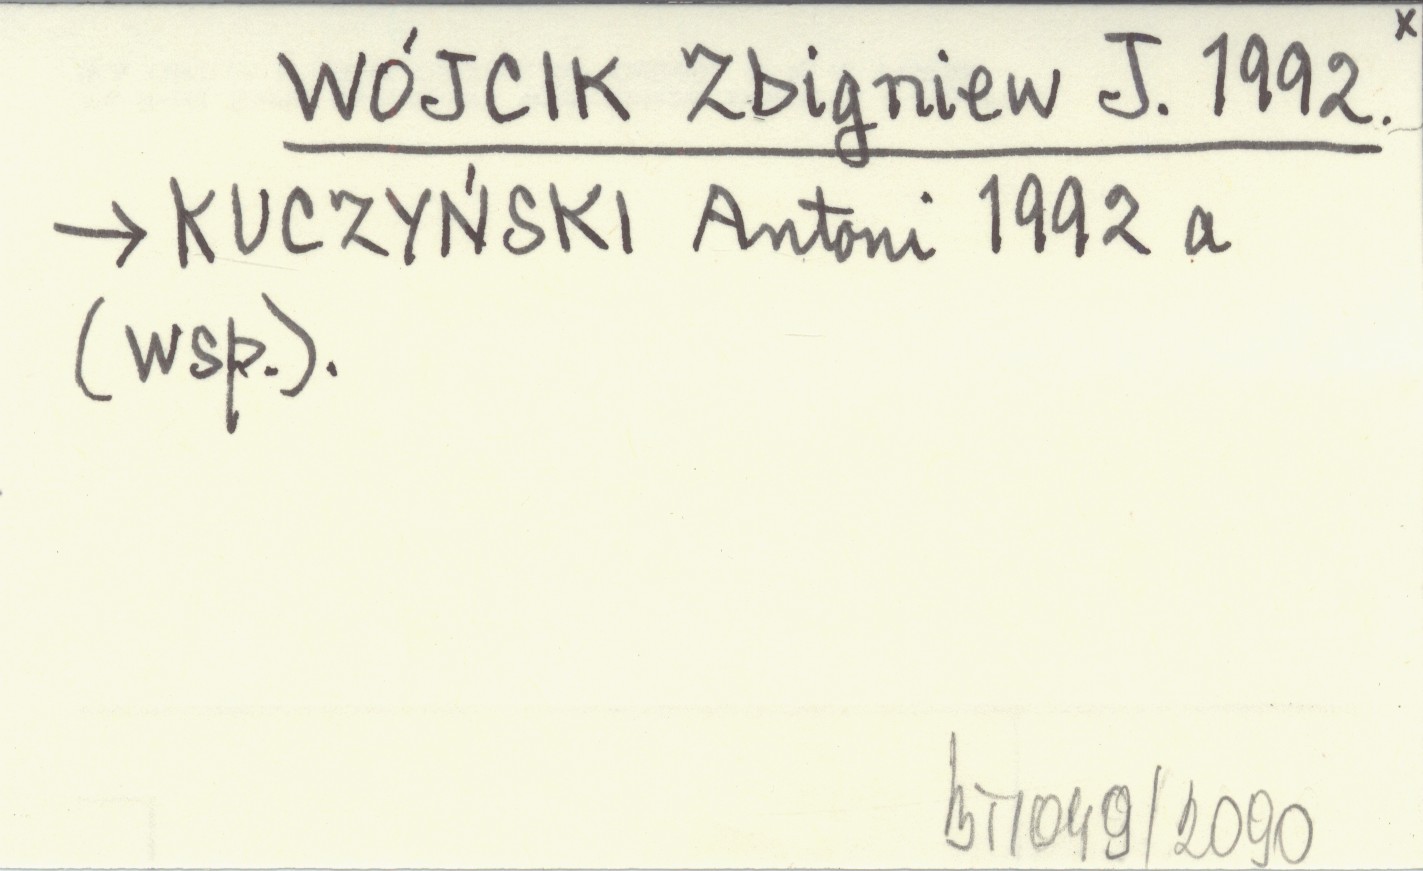 x
WÓJCIK Zbigniew J. 1992.
→ KUCZYŃSKI Antoni 1992 a
(wsp.).
BT1049/2090